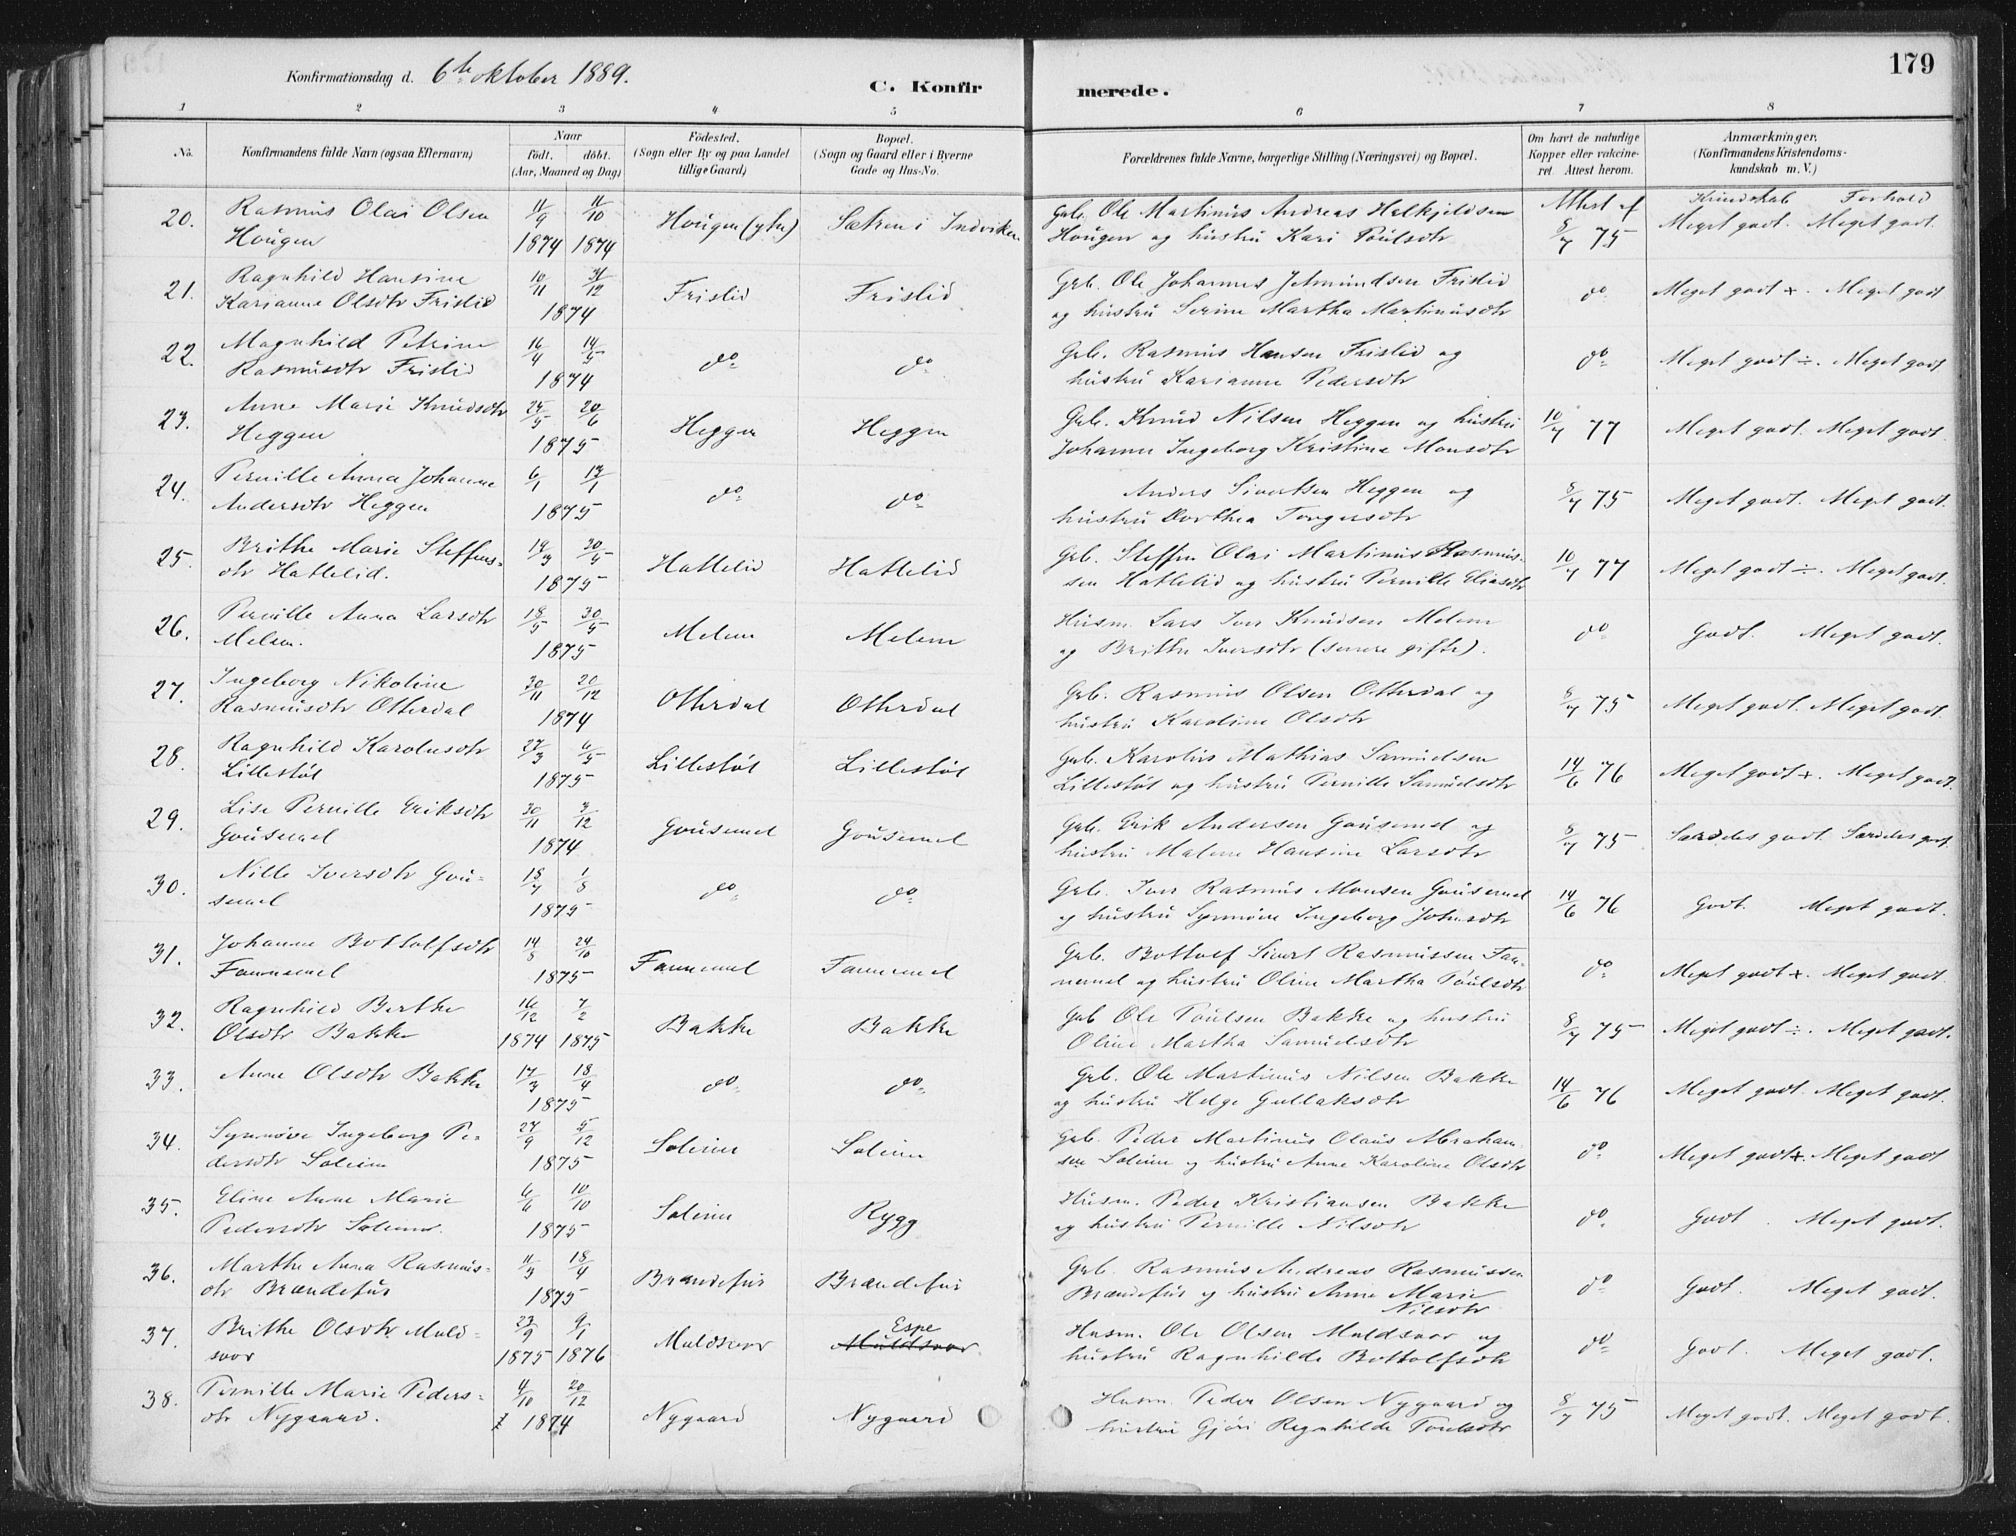 179
Konfirmationsdag d. 6te oktober 1889.
C. Konfirmerede.
1 2 3 4 5 6 7 8
No. Konfirmandens fulde Navn (ogsaa Efternavn) Naar födt. döbt. (Aar, Maaned og Dag) Födested. (Sogn eller By og paa Landet tillige Gaard) Bopæl. (Sogn og Gaard eller i Byerne Gade og Hus-No. Forældrenes fulde Navne, borgerlige Stilling (Næringsvei) og Bopæl. Om havt de naturlige Kopper eller vakcineret. Attest herom. Anmærkninger. (Konfirmandens Kristendomskundskab m.V.)
Attest af Kundskab Forhold
20. Rasmus Olai Olsen 11/9 11/10 Hougen (ytre) Sætren i Indviken Grb. Ole Martinus Andreas Helkjeldsen 8/7 75 Meget godt. Meget godt.
Hougen 1874 1874 Hougen og hustru Kari Poulsdtr
21. Ragnhild Hansine 10/11 31/12 Frislid Frislid Grb. Ole Johannes Jetmundsen Frislid do Meget godt +. Meget godt
Karianne Olsdtr Frislid 1874 og hustru Serine Martha Martinusdtr
22. Magnhild Petrine 16/4 14/5 do do Grb. Rasmus Hansen Frislid og do Meget godt ÷. Meget godt
Rasmusdtr Frislid 1874 hustru Karianne Pedersdtr
23. Anne Marie Knudsdtr 25/5 20/6 Heggen Heggen Grb. Knud Nilsen Heggen og hustru 10/7 77 Meget godt. Meget godt
Heggen 1875 Johanne Ingeborg Kristine Monsdtr
24. Pernille Anna Johanne 6/1 17/1 do do Anders Sivertsen Heggen og 8/7 75 Meget godt. Meget godt.
Andersdtr Heggen 1875 hustru Dorthea Torgersdtr
25. Brithe Marie Steffens- 19/3 20/5 Hattelid Hattelid Grb. Steffen Olai Martinus Rasmus- 10/7 77 Meget godt ÷. Meget godt.
dtr Hattelid. 1875 sen Hattelid og hustru Pernille Eliasdtr
26. Pernille Anna Larsdtr 18/5 30/5 Melem Melem Husm. Lars Iver Knudsen Melem do Godt. Meget godt.
Melem. 1875 og Brithe Iversdtr (senere gifte).
27. Ingeborg Nikoline 30/11 20/12 Otterdal Otterdal Grb. Rasmus Olsen Otterdal og 8/7 75 Meget godt. Meget godt.
Rasmusdtr Otterdal 1874 hustru Karoline Olsdtr
28. Ragnhild Karolusdtr 27/3 6/5 Lillestøl Lillestøl Grb. Karolus Mathias Samuelsen 14/6 76 Meget godt +. Meget godt.
Lillestøl 1875 Lillestøl og hustru Pernille Samuelsdtr
29. Lise Pernille Eriksdtr 30/11 3/12 Gousemel Gousemel Grb. Erik Andersen Gousemel og 8/7 75 Særdeles godt Særdeles godt.
Gousemel 1874 hustru Malene Hansine Larsdtr
30. Nille Iversdtr Gou- 18/7 1/8 do do Grb. Iver Rasmus Monsen Gousemel 14/6 76 Godt. Meget godt.
semel 1875 og hustru Synnøve Ingeborg Johnsdtr
31. Johanne Bottolfsdtr 14/8 24/10 Fannemel Fannemel Grb. Bottolf Sivert Rasmussen Fan- do Meget godt +. Meget godt
Fannemel 1875 nemel og hustru Oline Martha Poulsdtr
32. Ragnhild Berthe 16/12 7/2 Bakke Bakke Grb Ole Poulsen Bakke og hustru 8/7 75 Meget godt ÷. Meget godt.
Olsdtr Bakke 1874 1875 Oline Martha Samuelsdtr
33. Anne Olsdtr Bakke 17/3 18/4 do do Grb. Ole Martinus Nilsen Bakke 14/6 76 Meget godt. Meget godt.
1875 og hustru Helge Gullaksdtr
34. Synnøve Ingeborg Pe- 27/9 5/12 Soleim Soleim Grb. Peder Martinus Olaus Abraham- do Meget godt +. Meget godt
dersdtr Soleim 1875 sen Soleim og hustru Anne Karoline Olsdtr
35. Eline Anne Marie 6/6 10/10 Soleim Rygg Husm. Peder Kristiansen Bakke do Godt. Meget godt.
Pedersdtr Soleim. 1875 og hustru Pernille Nilsdtr
36. Marthe Anna Rasmus- 11/3 18/4 Brændefur Brændefur Grb. Rasmus Andreas Rasmussen do Godt. Meget godt.
dtr Brændefur 1875 Brændefur og hustru Anne Marie
Nilsdtr
37. Brithe Olsdtr Muld- 23/9 9/1 Muldsvor Espe Muldsvor Husm. Ole Olsen Muldsvor og do Godt. Meget godt.
svor 1875 1876 hustru Ragnhilde Bottolfsdtr
38. Pernille Marie Peders- 4/10 20/12 Nygaard Nygaard Husm. Peder Olsen Nygaard og 8/7 75 Meget godt. Meget godt.
dtr Nygaard. 1874 hustru Gjøri Regnhilde Poulsdtr